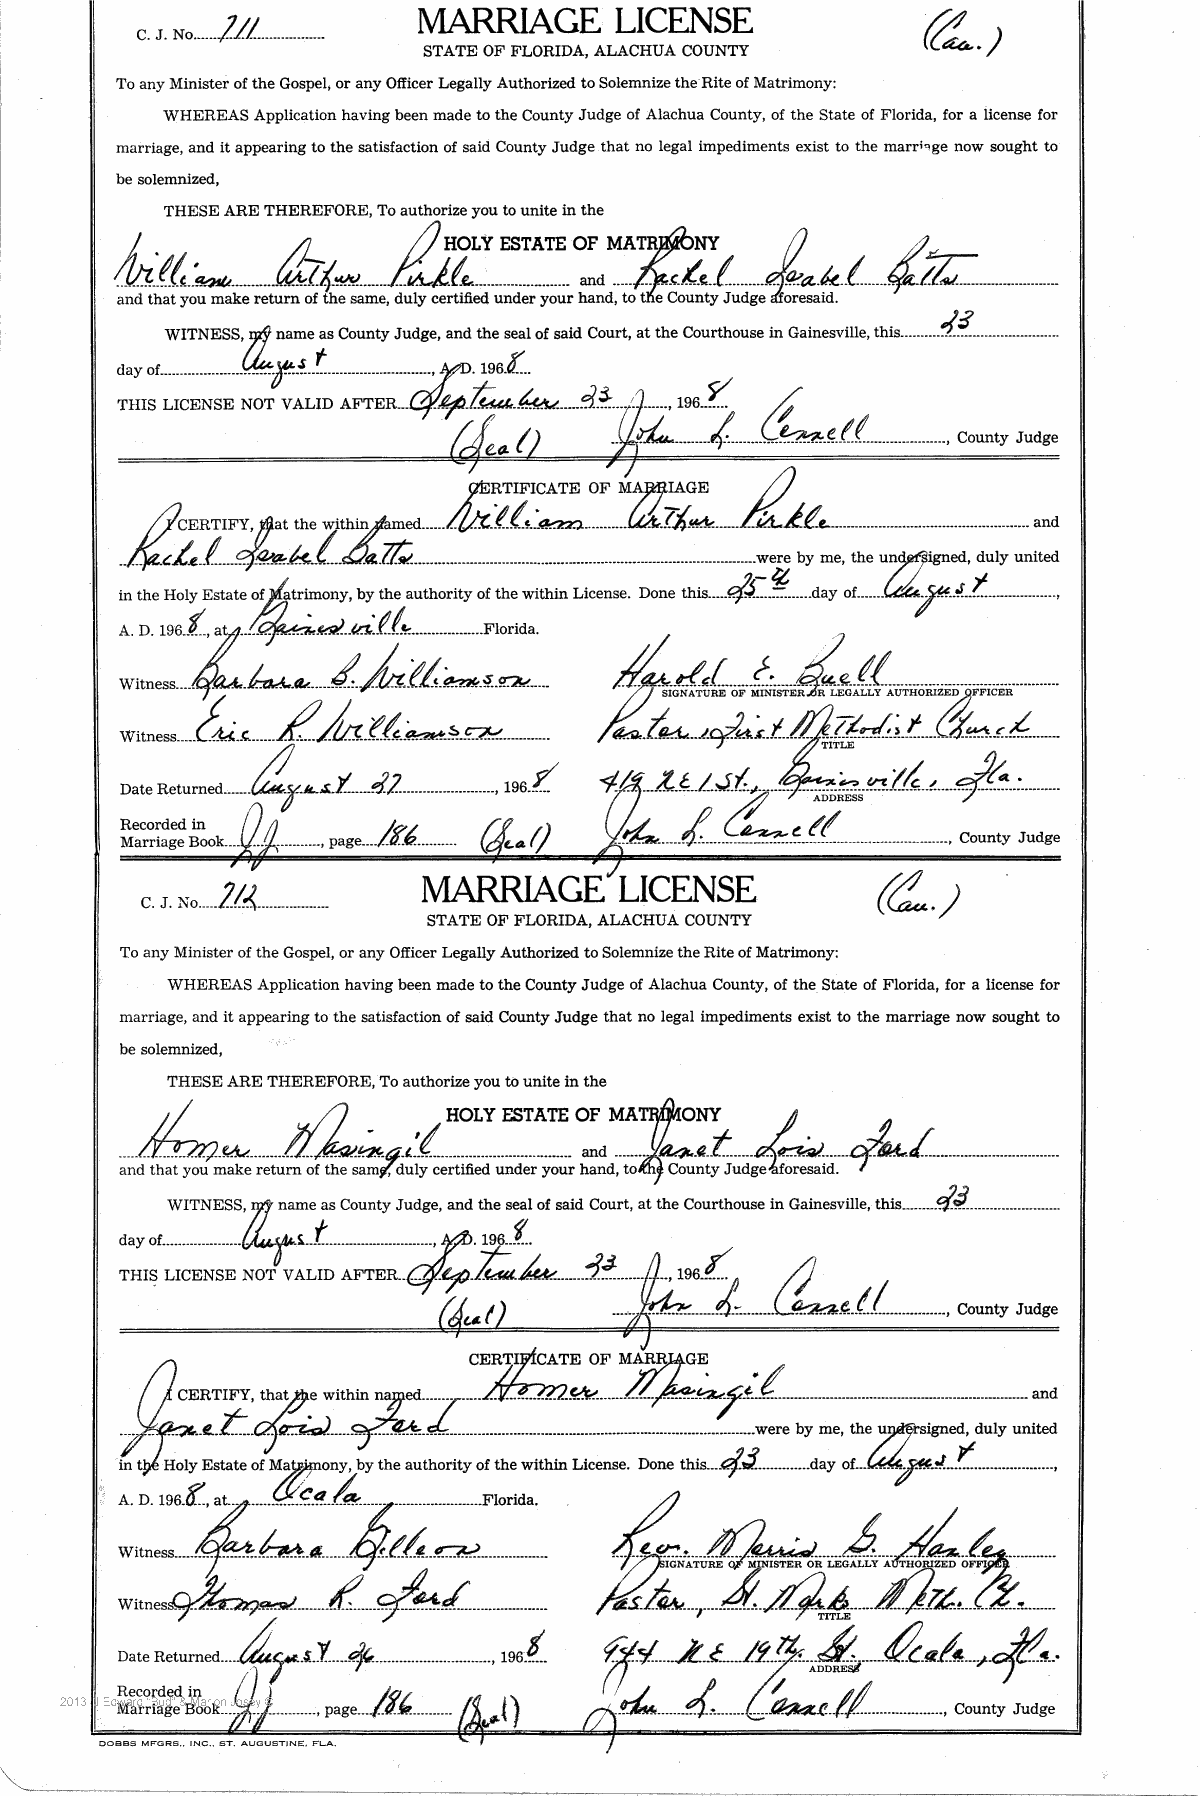 C. J. No. 711 MARRIAGE LICENSE (Cau.)
STATE OF FLORIDA, ALACHUA COUNTY
To any Minister of the Gospel, or any Officer Legally Authorized to Solemnize the Rite of Matrimony:
WHEREAS Application having been made to the County Judge of Alachua County, of the State of Florida, for a license for
marriage, and it appearing to the satisfaction of said County Judge that no legal impediments exist to the marriage now sought to
be solemnized,
THESE ARE THEREFORE, To authorize you to unite in the
HOLY ESTATE OF MATRIMONY
William Arthur Pirkle and Rachel Isabel Batts
and that you make return of the same, duly certified under your hand, to the County Judge aforesaid.
WITNESS, my name as County Judge, and the seal of said Court, at the Courthouse in Gainesville, this 23
day of August, A. D. 1968
THIS LICENSE NOT VALID AFTER September 23, 1968
(Seal) John L. Connell, County Judge
CERTIFICATE OF MARRIAGE
I CERTIFY, that the within named William Arthur Pirkle and
Rachel Isabel Batts were by me, the undersigned, duly united
in the Holy Estate of Matrimony, by the authority of the within License. Done this 25th day of August,
A. D. 1968, at Gainesville Florida.
Witness Barbara B. Williamson Harold E. Buell
SIGNATURE OF MINISTER OR LEGALLY AUTHORIZED OFFICER
Witness Eric R. Williamson Pastor, First Methodist Church
TITLE
Date Returned August 27, 1968 419 NE 1 St., Gainesville, Fla.
ADDRESS
Recorded in
Marriage Book JJ, page 186 (Seal) John L. Connell, County Judge
C. J. No. 712 MARRIAGE LICENSE (Cau.)
STATE OF FLORIDA, ALACHUA COUNTY
To any Minister of the Gospel, or any Officer Legally Authorized to Solemnize the Rite of Matrimony:
WHEREAS Application having been made to the County Judge of Alachua County, of the State of Florida, for a license for
marriage, and it appearing to the satisfaction of said County Judge that no legal impediments exist to the marriage now sought to
be solemnized,
THESE ARE THEREFORE, To authorize you to unite in the
HOLY ESTATE OF MATRIMONY
Homer Masingil and Janet Lois Ford
and that you make return of the same, duly certified under your hand, to the County Judge aforesaid.
WITNESS, my name as County Judge, and the seal of said Court, at the Courthouse in Gainesville, this 23
day of August, A. D. 1968
THIS LICENSE NOT VALID AFTER September 23, 1968
(Seal) John L. Connell, County Judge
CERTIFICATE OF MARRIAGE
I CERTIFY, that the within named Homer Masingil and
Janet Lois Ford were by me, the undersigned, duly united
in the Holy Estate of Matrimony, by the authority of the within License. Done this 23 day of August,
A. D. 1968, at Ocala Florida.
Witness Barbara Gilleon Rev. Morris G. Hanley
SIGNATURE OF MINISTER OR LEGALLY AUTHORIZED OFFICER
Witness Thomas R. Ford Pastor, St. Marks Meth. Ch.
TITLE
Date Returned August 26, 1968 944 NE 19th. St. Ocala, Fla.
ADDRESS
Recorded in
Marriage Book JJ, page 186 (Seal) John L. Connell, County Judge
DOBBS MFGRS., INC., ST. AUGUSTINE, FLA.